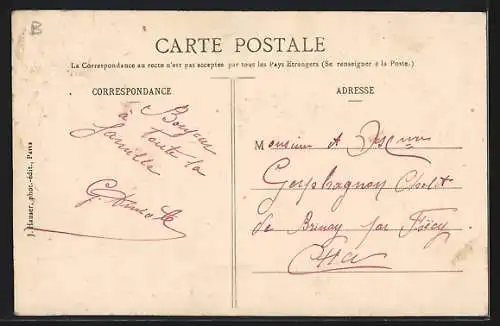 CARTE POSTALE
La Correspondance au recto n'est pas acceptée par tous les Pays Etrangers (Se renseigner à la Poste.)
CORRESPONDANCE
Bonjour
à toute la
famille
J. Hauser, phot.-édit., Paris
ADRESSE
Monsieur
de Brinay par Foëcy
Cher